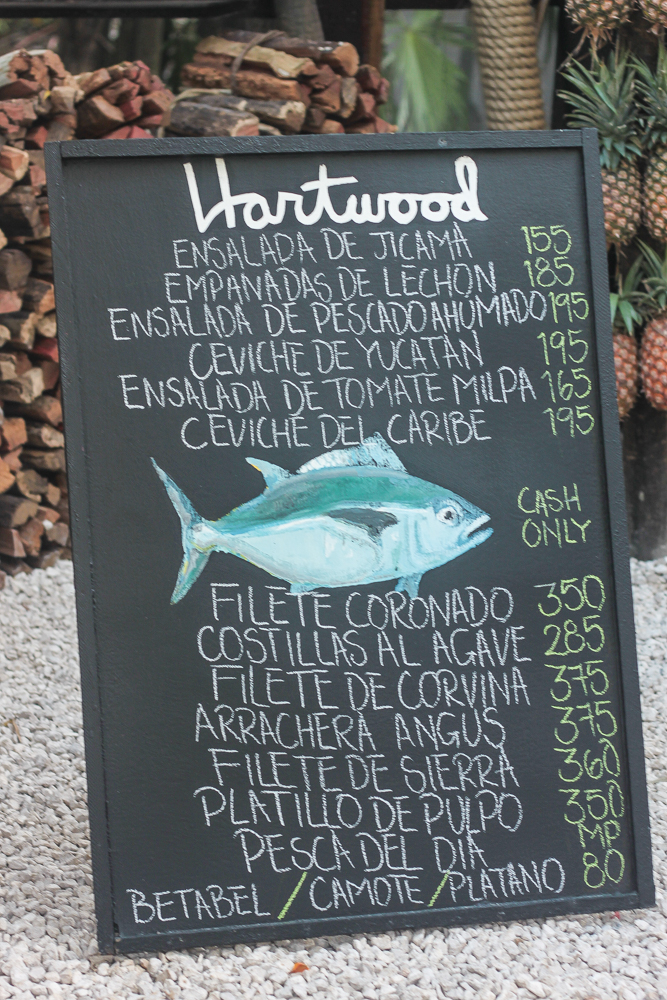 Hartwood
ENSALADA DE JICAMA 155
EMPANADAS DE LECHON 185
ENSALADA DE PESCADO AHUMADO 195
CEVICHE DE YUCATAN 195
ENSALADA DE TOMATE MILPA 165
CEVICHE DEL CARIBE 195
CASH
ONLY
FILETE CORONADO 350
COSTILLAS AL AGAVE 285
FILETE DE CORVINA 375
ARRACHERA ANGUS 375
FILETE DE SIERRA 360
PLATILLO DE PULPO 350
PESCA DEL DIA MP
BETABEL / CAMOTE / PLATANO 80